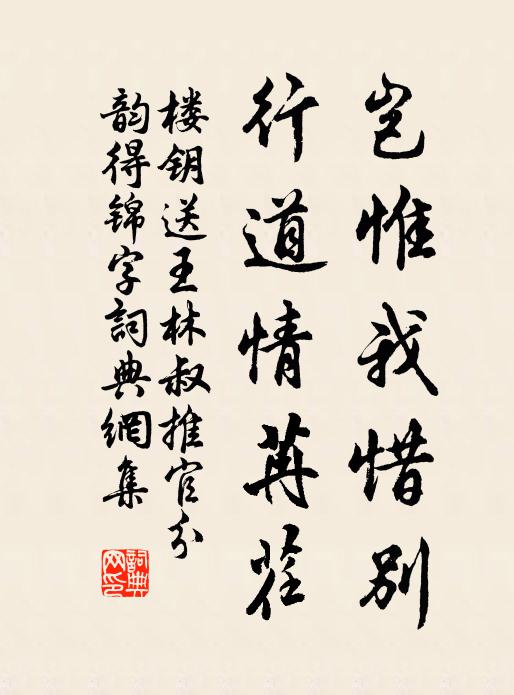 岂惟我惜别
行道情苒荏
楼钥送王林叔推官分
韵得锦字詞典網集
詞典
网印